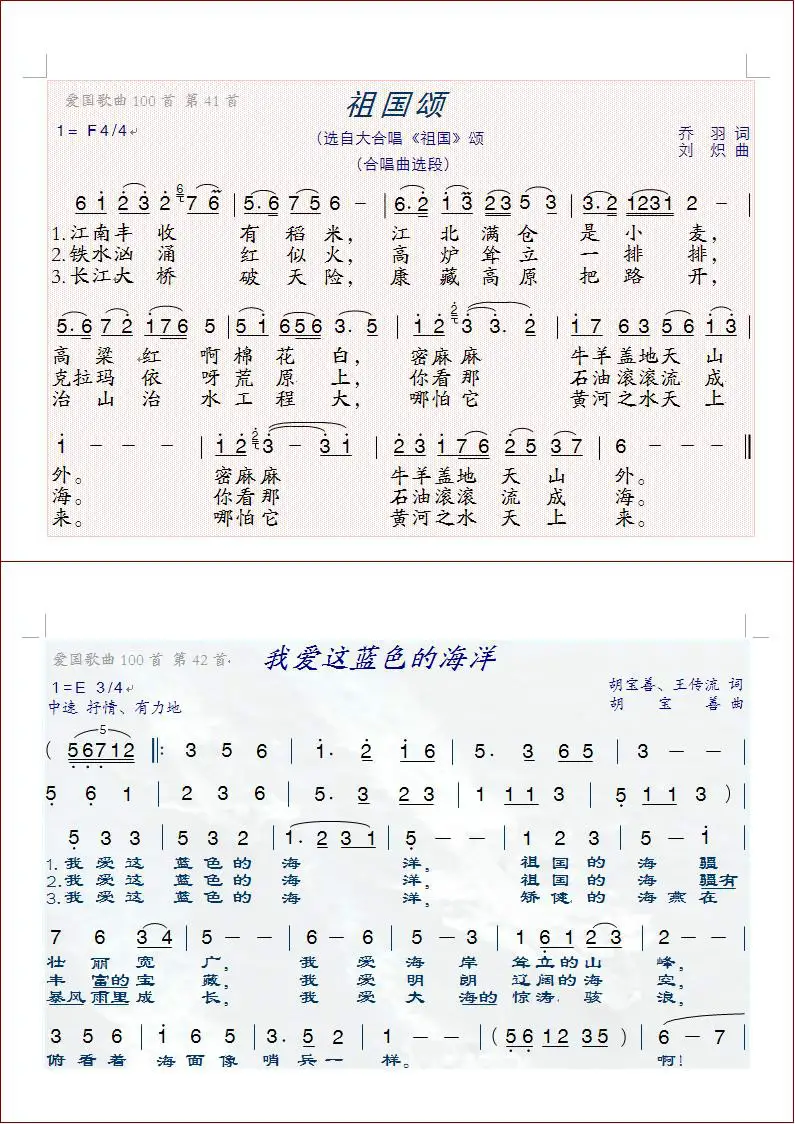 爱国歌曲 100 首 第 41 首
祖国颂
1= F4/4
(选自大合唱《祖国》颂
(合唱曲选段)
乔 羽 词
刘 炽 曲
6 1 2 3 2 6 7 6 | 5. 6 7 5 6 － | 6. 2 1 3 2 3 5 3 | 3. 2 1231 2 － |
1.江南丰 收 有 稻 米， 江 北 满 仓 是 小 麦，
2.铁水汹 涌 红 似 火， 高 炉 耸 立 一 排 排，
3.长江大 桥 破 天 险， 康 藏 高 原 把 路 开，
5. 6 7 2 1 7 6 5 | 5 1 6 5 6 3. 5 | 1 2 2 3 3. 2 | 1 7 6 3 5 6 1 3 |
高 粱 红 啊 棉 花 白， 密麻 麻 牛羊盖地天 山
克拉玛 依 呀 荒 原 上， 你看 那 石油滚滚流 成
治 山 治 水 工 程 大， 哪怕 它 黄河之水天 上
1 － － － | 1 2 2 3 － 3 1 | 2 3 1 7 6 2 5 3 7 | 6 － － － ‖
外。 密麻麻 牛羊盖地 天 山 外。
海。 你看那 石油滚滚 流 成 海。
来。 哪怕它 黄河之水 天 上 来。
爱国歌曲 100 首 第 42 首.
我爱这蓝色的海洋
1=E 3/4
胡宝善、王传流 词
中速 抒情、有力地
胡 宝 善 曲
5
( 5 6 7 1 2 ‖: 3 5 6 | 1. 2 1 6 | 5. 3 6 5 | 3 － － |
5 6 1 | 2 3 6 | 5. 3 2 3 | 1 1 1 3 | 5 1 1 3 ) |
5 3 3 | 5 3 2 | 1. 2 3 1 | 5 － － | 1 2 3 | 5 － 1 |
1.我 爱 这 蓝 色 的 海 洋， 祖 国 的 海 疆
2.我 爱 这 蓝 色 的 海 洋， 祖 国 的 海 疆有
3.我 爱 这 蓝 色 的 海 洋， 矫 健 的 海 燕 在
7 6 3 4 | 5 － － | 6 － 6 | 5 － 3 | 1 6 1 2 3 | 2 － － |
壮 丽 宽 广， 我 爱 海 岸 耸立的 山 峰，
丰 富的 宝 藏， 我 爱 明 朗 辽阔的 海 空，
暴风 雨里 成 长， 我 爱 大 海的 惊 涛 骇 浪，
3 5 6 | 1 6 5 | 3. 5 2 | 1 － － | ( 5 6 1 2 3 5 ) | 6 － 7
俯 看 着 海 面 像 哨 兵 一 样。 啊！